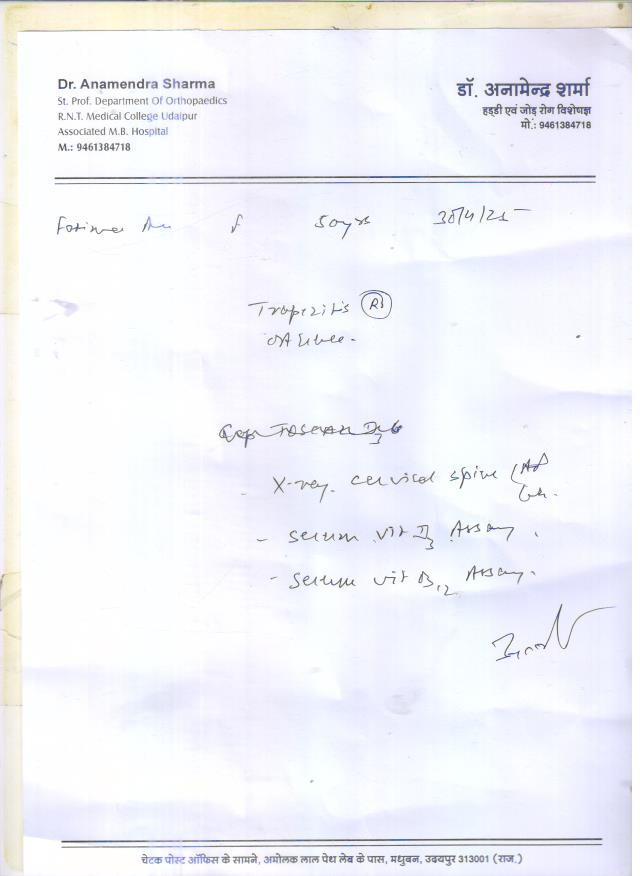 Dr. Anamendra Sharma
St. Prof. Department Of Orthopaedics
R.N.T. Medical College Udaipur
Associated M.B. Hospital
M.: 9461384718
डॉ. अनामेन्द्र शर्मा
हड्डी एवं जोड़ रोग विशेषज्ञ
मो.: 9461384718
f 50yrs
Trapezitis
OA
X-ray. cervical spine
- serum vit D3 Assay.
- serum vit B12 Assay.
चेटक पोस्ट ऑफिस के सामने, अमोलक लाल पेथ लेब के पास, मधुबन, उदयपुर 313001 (राज.)